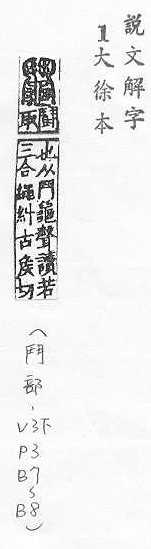 說文解字
1大徐本
鬮鬭取
也从鬥龜聲讀若
三合繩糾古矦切
(鬥部,V3下
P3
B7
~
B8)